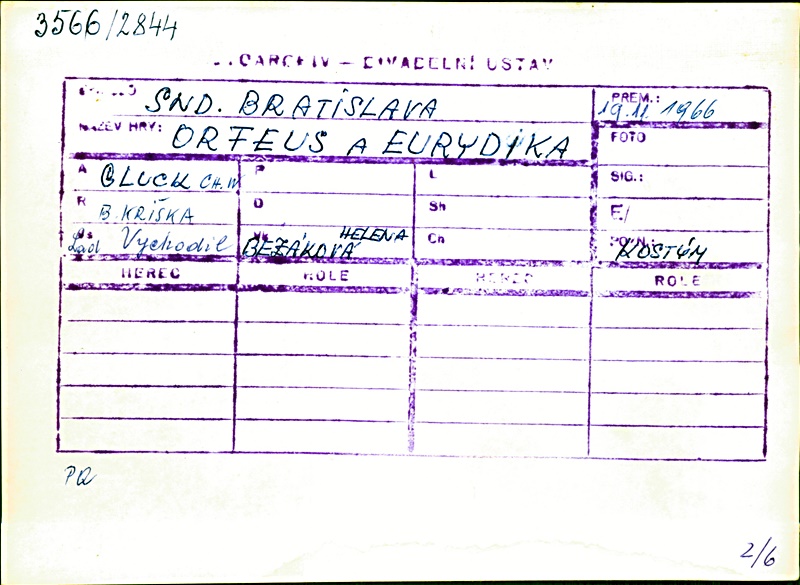 3566/2844
DIVADELNÍ ÚSTAV
SND. BRATISLAVA
PREM.: 19.11. 1966
NÁZEV HRY: ORFEUS A EURYDIKA
FOTO
A GLUCK CH. W
P
L
SIG.:
R B. KRIŠKA
D
Sh
E/
Lad Vychodil
HELENA
BEZÁKOVÁ
Ch
KOSTÝM
HEREC ROLE HEREC ROLE
PQ
2/6